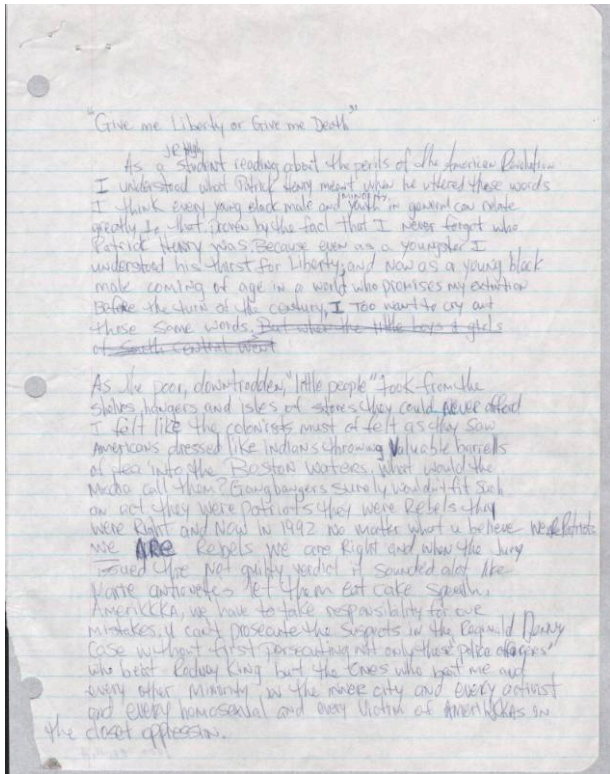 "Give me Liberty or Give me Death"
JR High
As a student reading about the perils of the American Revolution
I understood what Patrick Henry meant when he uttered those words
I think every young black male and minority youth in general can relate
greatly 2 that proven by the fact that I never forgot who
Patrick Henry was. Because even as a youngster I
understood his thirst for Liberty, and now as a young black
male coming of age in a world who promises my extinction
Before the turn of the century, I Too want to cry out
those same words. But when the little boys & girls
of South Central went
As the poor, downtrodden, "little people" took from the
shelves, hangers and isles of stores they could never afford
I felt like the colonists must of felt as they saw
Americans dressed like indians throwing Valuable barrells
of tea into the Boston waters. What would the
Media call them? Gangbangers surely wouldn't fit such
an act they were Patriots they were Rebels they
were Right and Now in 1992 no matter what u believe We R Patriots
we ARE Rebels we are Right and when the Jury
issued the Not guilty verdict it sounded alot like
Marie antionetes let them Eat cake speech.
AmeriKKKA, we have to take responsibility for our
mistakes. U can't prosecute the suspects in the Reginald Denny
case without first persecuting not only those "police officers"
who beat Rodney King but the ones who beat me and
every other minority in the inner city and every activist
and every homosexual and every Victim of AmeriKKKAs in
the closet oppression.